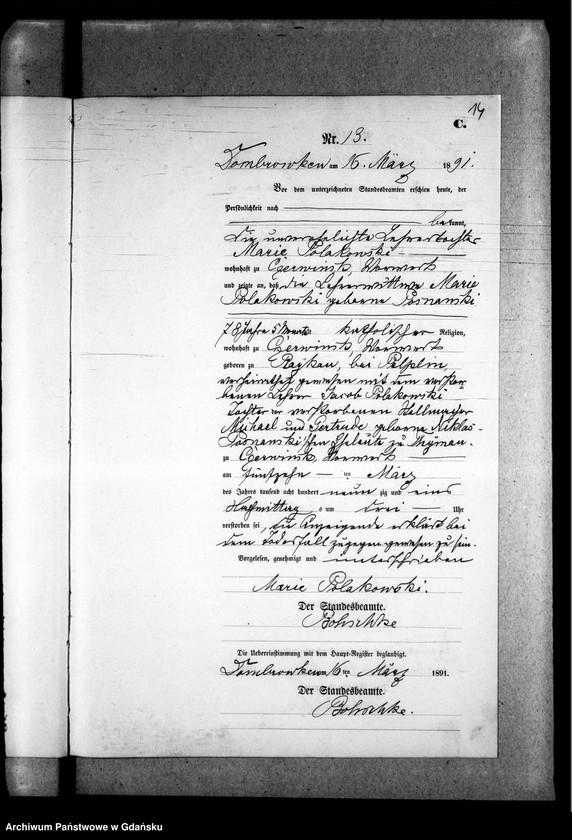 14
C.
Nr. 13.
Dombrowken am 16. März 1891.
Vor dem unterzeichneten Standesbeamten erschien heute, der
Persönlichkeit nach
bekannt,
die unverehelichte Lehrertochter
Marie Polakowski
wohnhaft zu Czerwinsk, Vorwerk
und zeigte an, daß die Lehrerwittwe Marie
Polakowski geborene Posnanski
78 Jahre 5 Monate alt katholischer Religion,
wohnhaft zu Czerwinsk, Vorwerk
geboren zu Rajkau, bei Pelplin,
verheirathet gewesen mit dem verstor
benen Lehrer Jacob Polakowski
Tochter der verstorbenen
Michael und Gertrude geborene Niklas-
Posnanski'schen Eheleute zu
zu Czerwinsk, Vorwerk
am fünfzehn ten März
des Jahres tausend acht hundert neun zig und eins
Nachmittags um drei Uhr
verstorben sei, die Anzeigende erklärt bei
dem Todesfall zugegen gewesen zu sein.
Vorgelesen, genehmigt und unterschrieben
Marie Polakowski.
Der Standesbeamte.
Bohschke
Die Uebereinstimmung mit dem Haupt-Register beglaubigt.
Dombrowken am 16 ten März 1891.
Der Standesbeamte.
Bohschke.
Archiwum Państwowe w Gdańsku